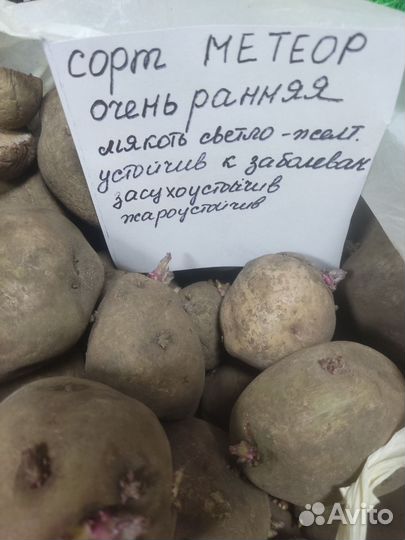 сорт МЕТЕОР
очень ранняя
мякоть светло-желт.
устойчив к заболеван
засухоустойчив
жароустойчив
Avito